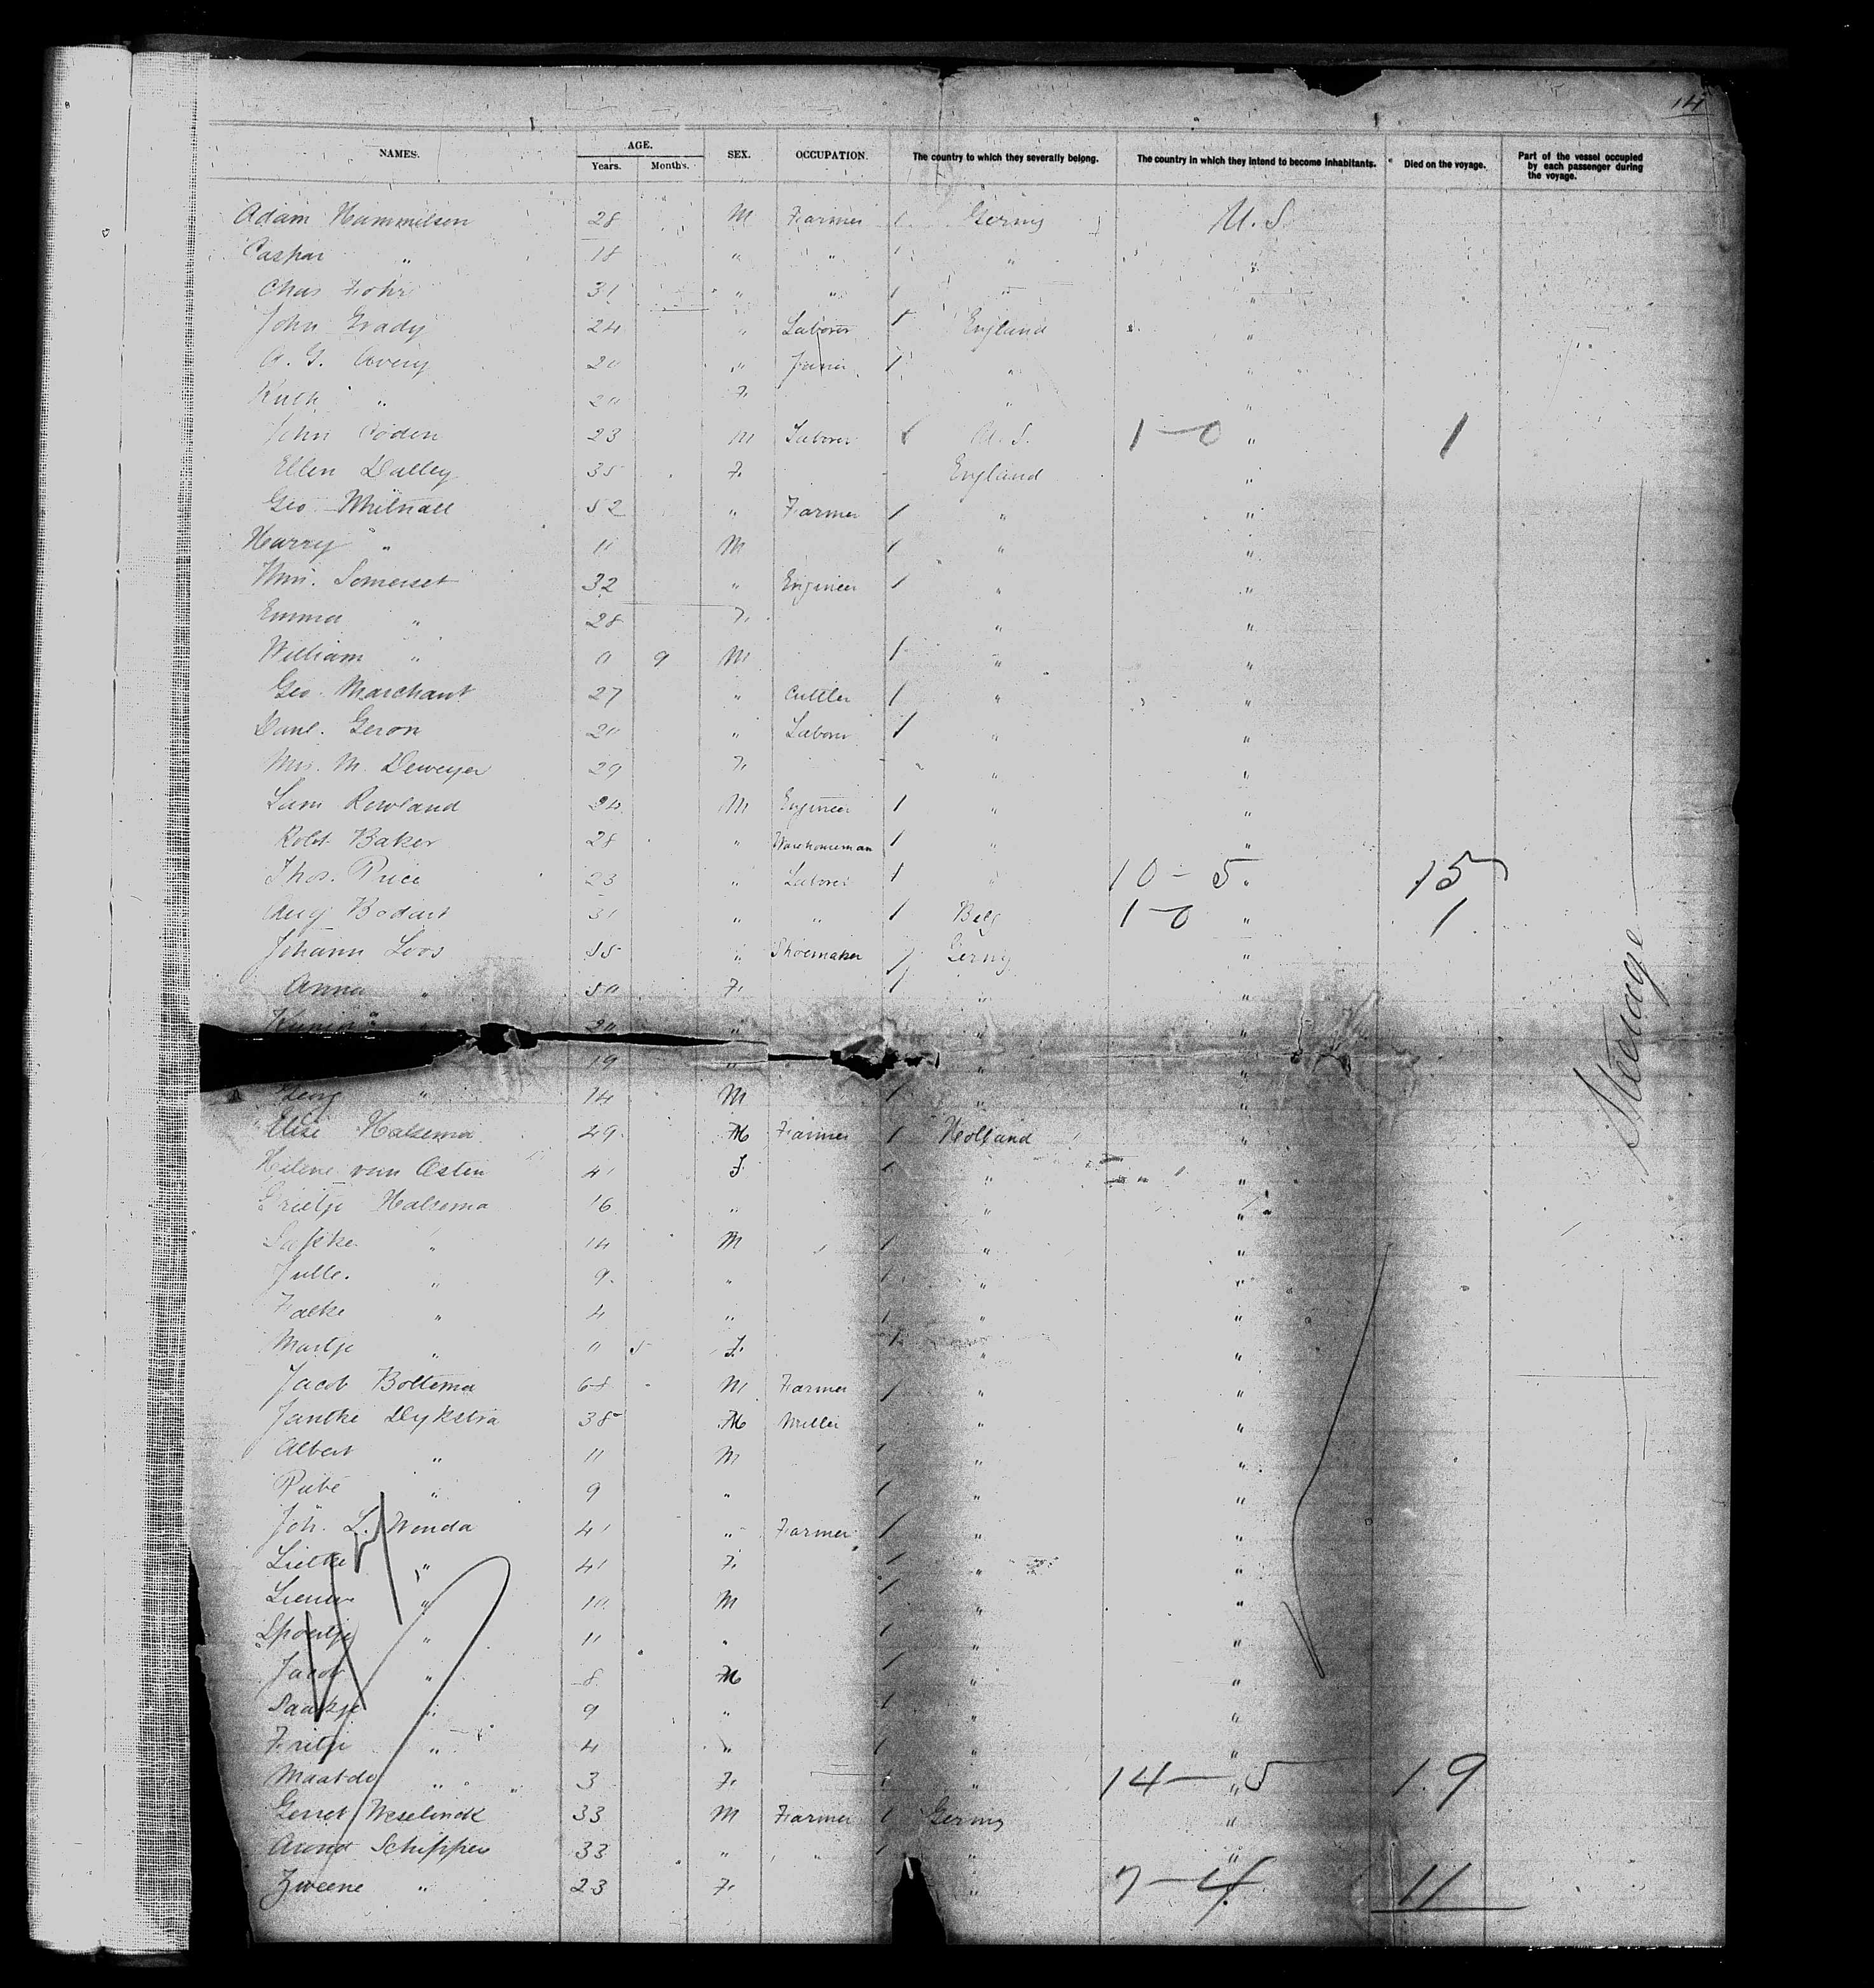 14
NAMES. AGE. SEX. OCCUPATION. The country to which they severally belong. The country in which they intend to become inhabitants. Died on the voyage. Part of the vessel occupied by each passenger during the voyage.
Years. Months.
Adam Hammelsen 28 M Farmer 1 Germy U.S.
Caspar " 18 " " 1 " "
Chas Fohr 31 " " 1 " "
John Grady 24 " Laborer 1 England "
A. G. Avery 20 " 1 " "
Ruth " 20 F. " "
John Roden 23 M Laborer U.S. 1-0 " 1
Ellen Dalley 35 F. - England "
Geo. Whitnall 52 " Farmer 1 " "
Harry " 11 M 1 " "
Wm. Somerset 32 " Engineer 1 " "
Emma " 28 F. " "
William " 0 9 M 1 " "
Geo. Marchant 27 " Cuttler 1 " "
Danl. Geron 20 " Laborer 1 " "
Mrs. M. Deweyer 29 F. - " "
Sam Rowland 24 M Engineer 1 " "
Robt. Baker 28 " Warehouseman 1 " "
Thos. Price 23 " Laborer 1 " 10-5 " 15
Aug Bodart 31 " " 1 Belg 1-0 " 1
Johann Loos 55 " Shoemaker 1 Germy "
Anna " 50 F. 1 " "
20 " " "
19 " " "
Georg " 14 M 1 " "
Elise Halsema 49 M Farmer 1 Holland "
Helene van Osten 41 F 1 " "
Grietje Halsema 16 " " "
14 M 1 " "
Julle. " 9 " 1 " "
Falke " 4 " 1 " "
Martje " 0 5 F. 1 " "
Jacob Boltema 68 M Farmer 1 " "
Jantke Dykstra 38 M Miller " "
Albert " 11 M 1 " "
Rube " 9 " 1 " "
Joh. L. Wenda 41 " Farmer 1 " "
Lietke " 41 F. 1 " "
" 10 M 1 " "
" 11 " 1 " "
Jacob " 8 M 1 " "
Saakje " 9 " 1 " "
Fritje " 4 " 1 " "
" 3 F. 1 " 14-5 " 19
Gerret Weselinck 33 M Farmer 1 Germy "
Arend Schipper 33 " " 1 " "
Zweene " 23 F. " 7-4 " 11
Steerage